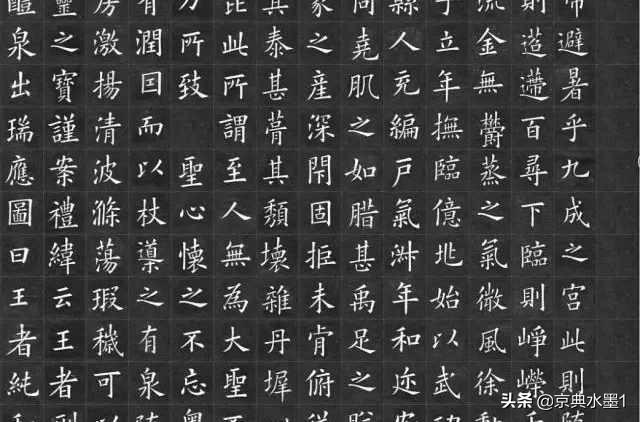 帝避暑乎九成之宮此則隨
則迢遰百尋下臨則崢嶸千
流金無鬱蒸之氣微風徐動
于立年撫臨億兆始以武功
縣人充編戶氣淑年和迩安
同堯肌之如腊甚禹足之胝
家之產深閇固拒未肯俯從
其泰甚葺其頹壞雜丹墀
此所謂至人無為大聖不
力所致聖心懷之不忘粵
有潤因而以杖導之有泉隨
房激揚清波滌蕩瑕穢可以
靈之寶謹案禮緯云王者刑
醴泉出瑞應圖曰王者純和
头条 @京典水墨1